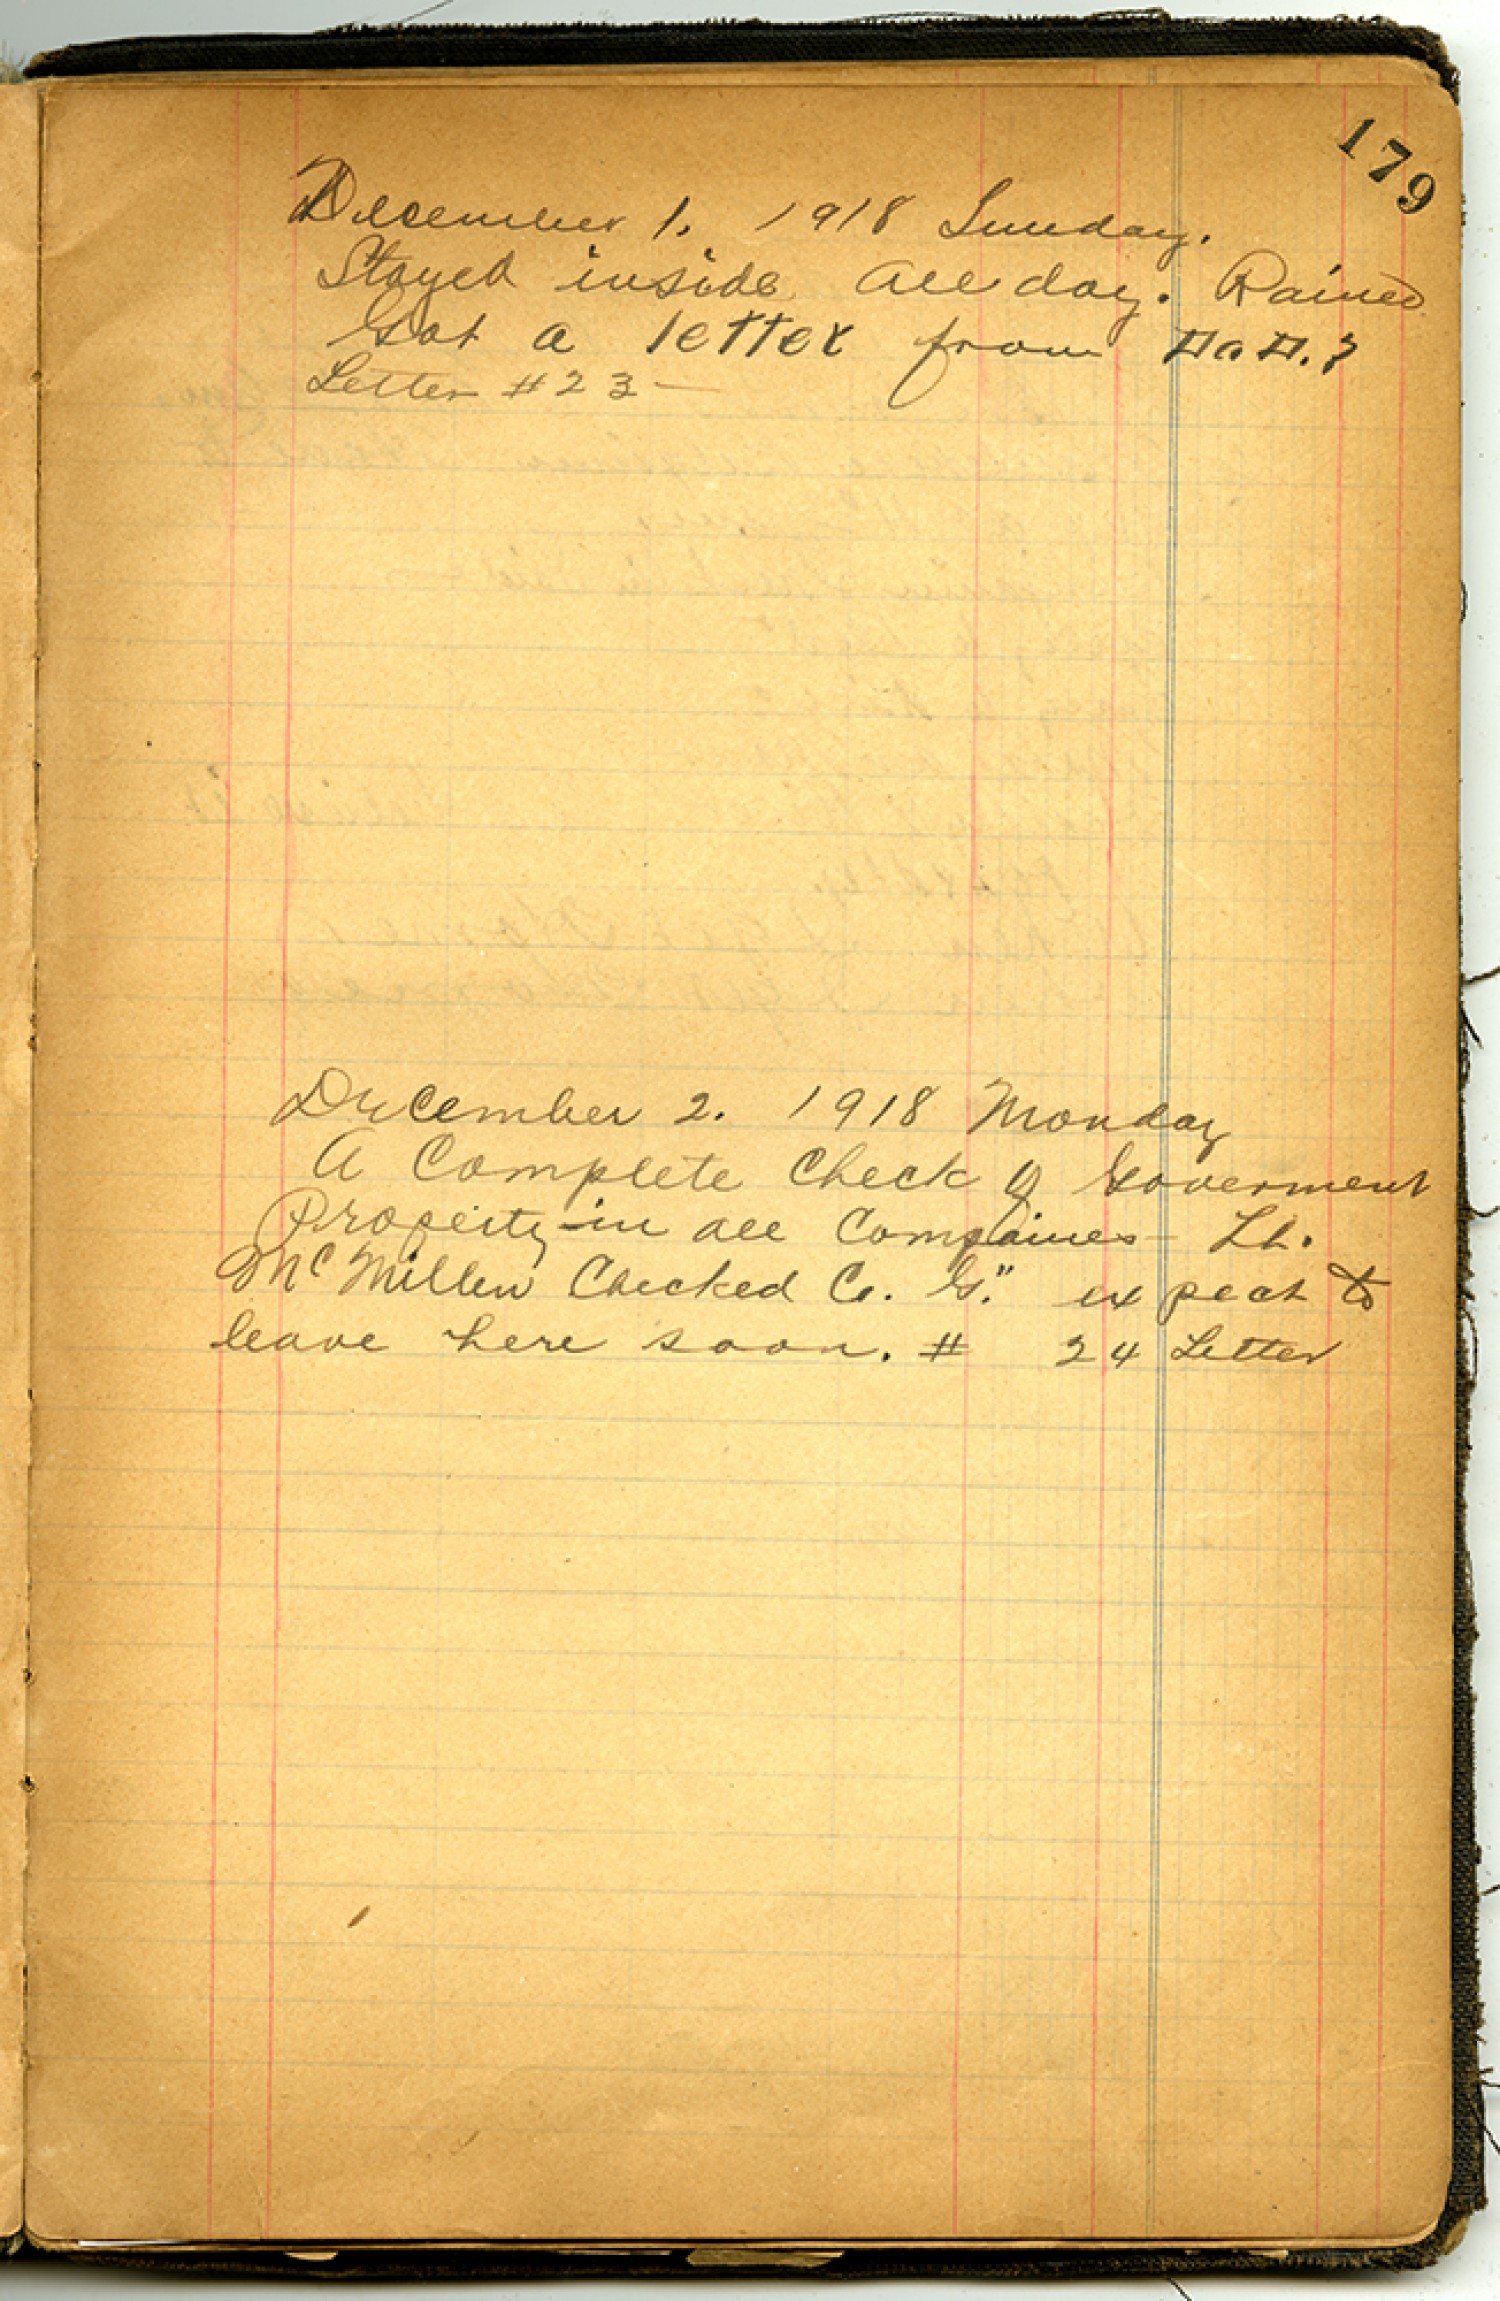 179
December 1. 1918 Sunday.
Stayed inside all day. Rained
Got a letter from
Letter #23—
December 2. 1918 Monday
A Complete Check of Goverment
Property in all Compaines — Lt.
McMillen Checked Co. G." expect to
leave here soon. # 24 Letter